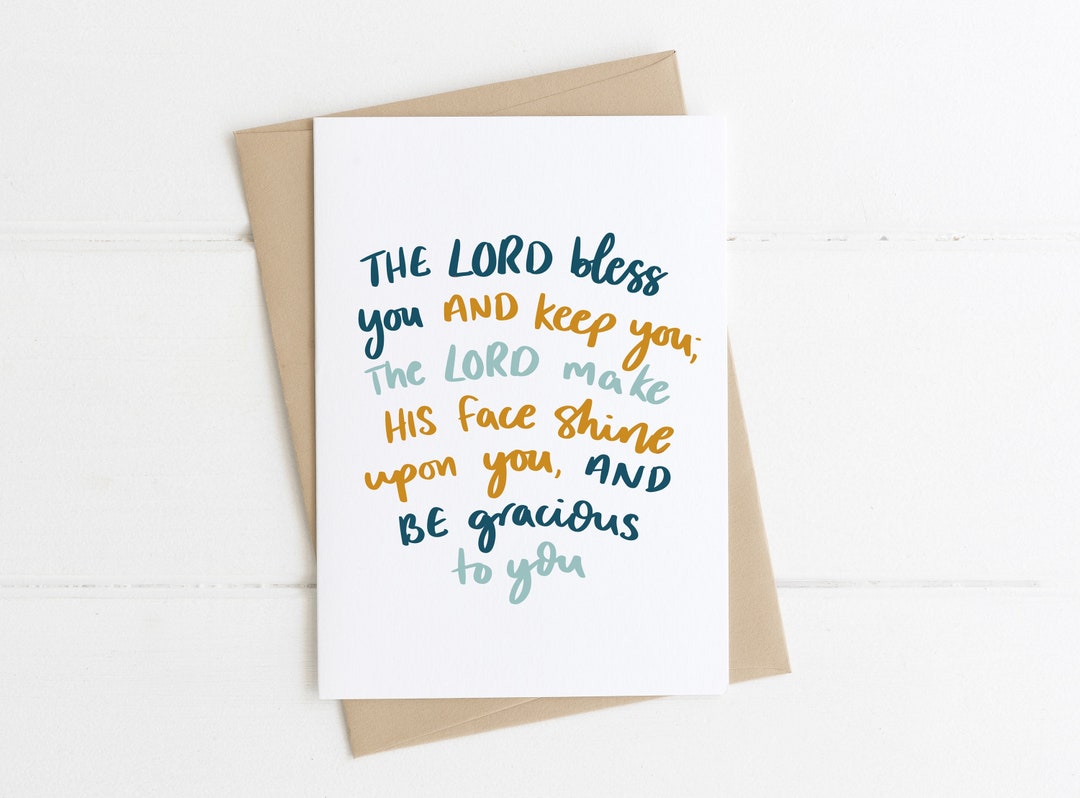 THE LORD bless
you AND keep you;
The LORD make
HIS face shine
upon you, AND
BE gracious
to you